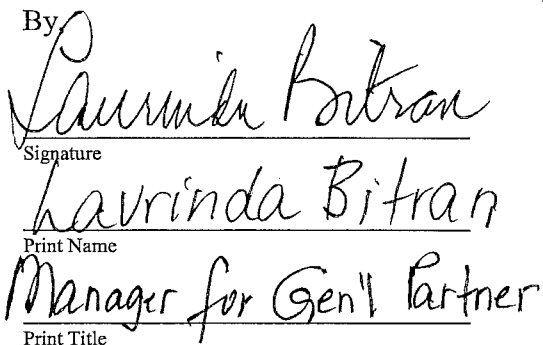 By
Laurinda Bitran
Signature
Laurinda Bitran
Print Name
Manager for Gen'l Partner
Print Title